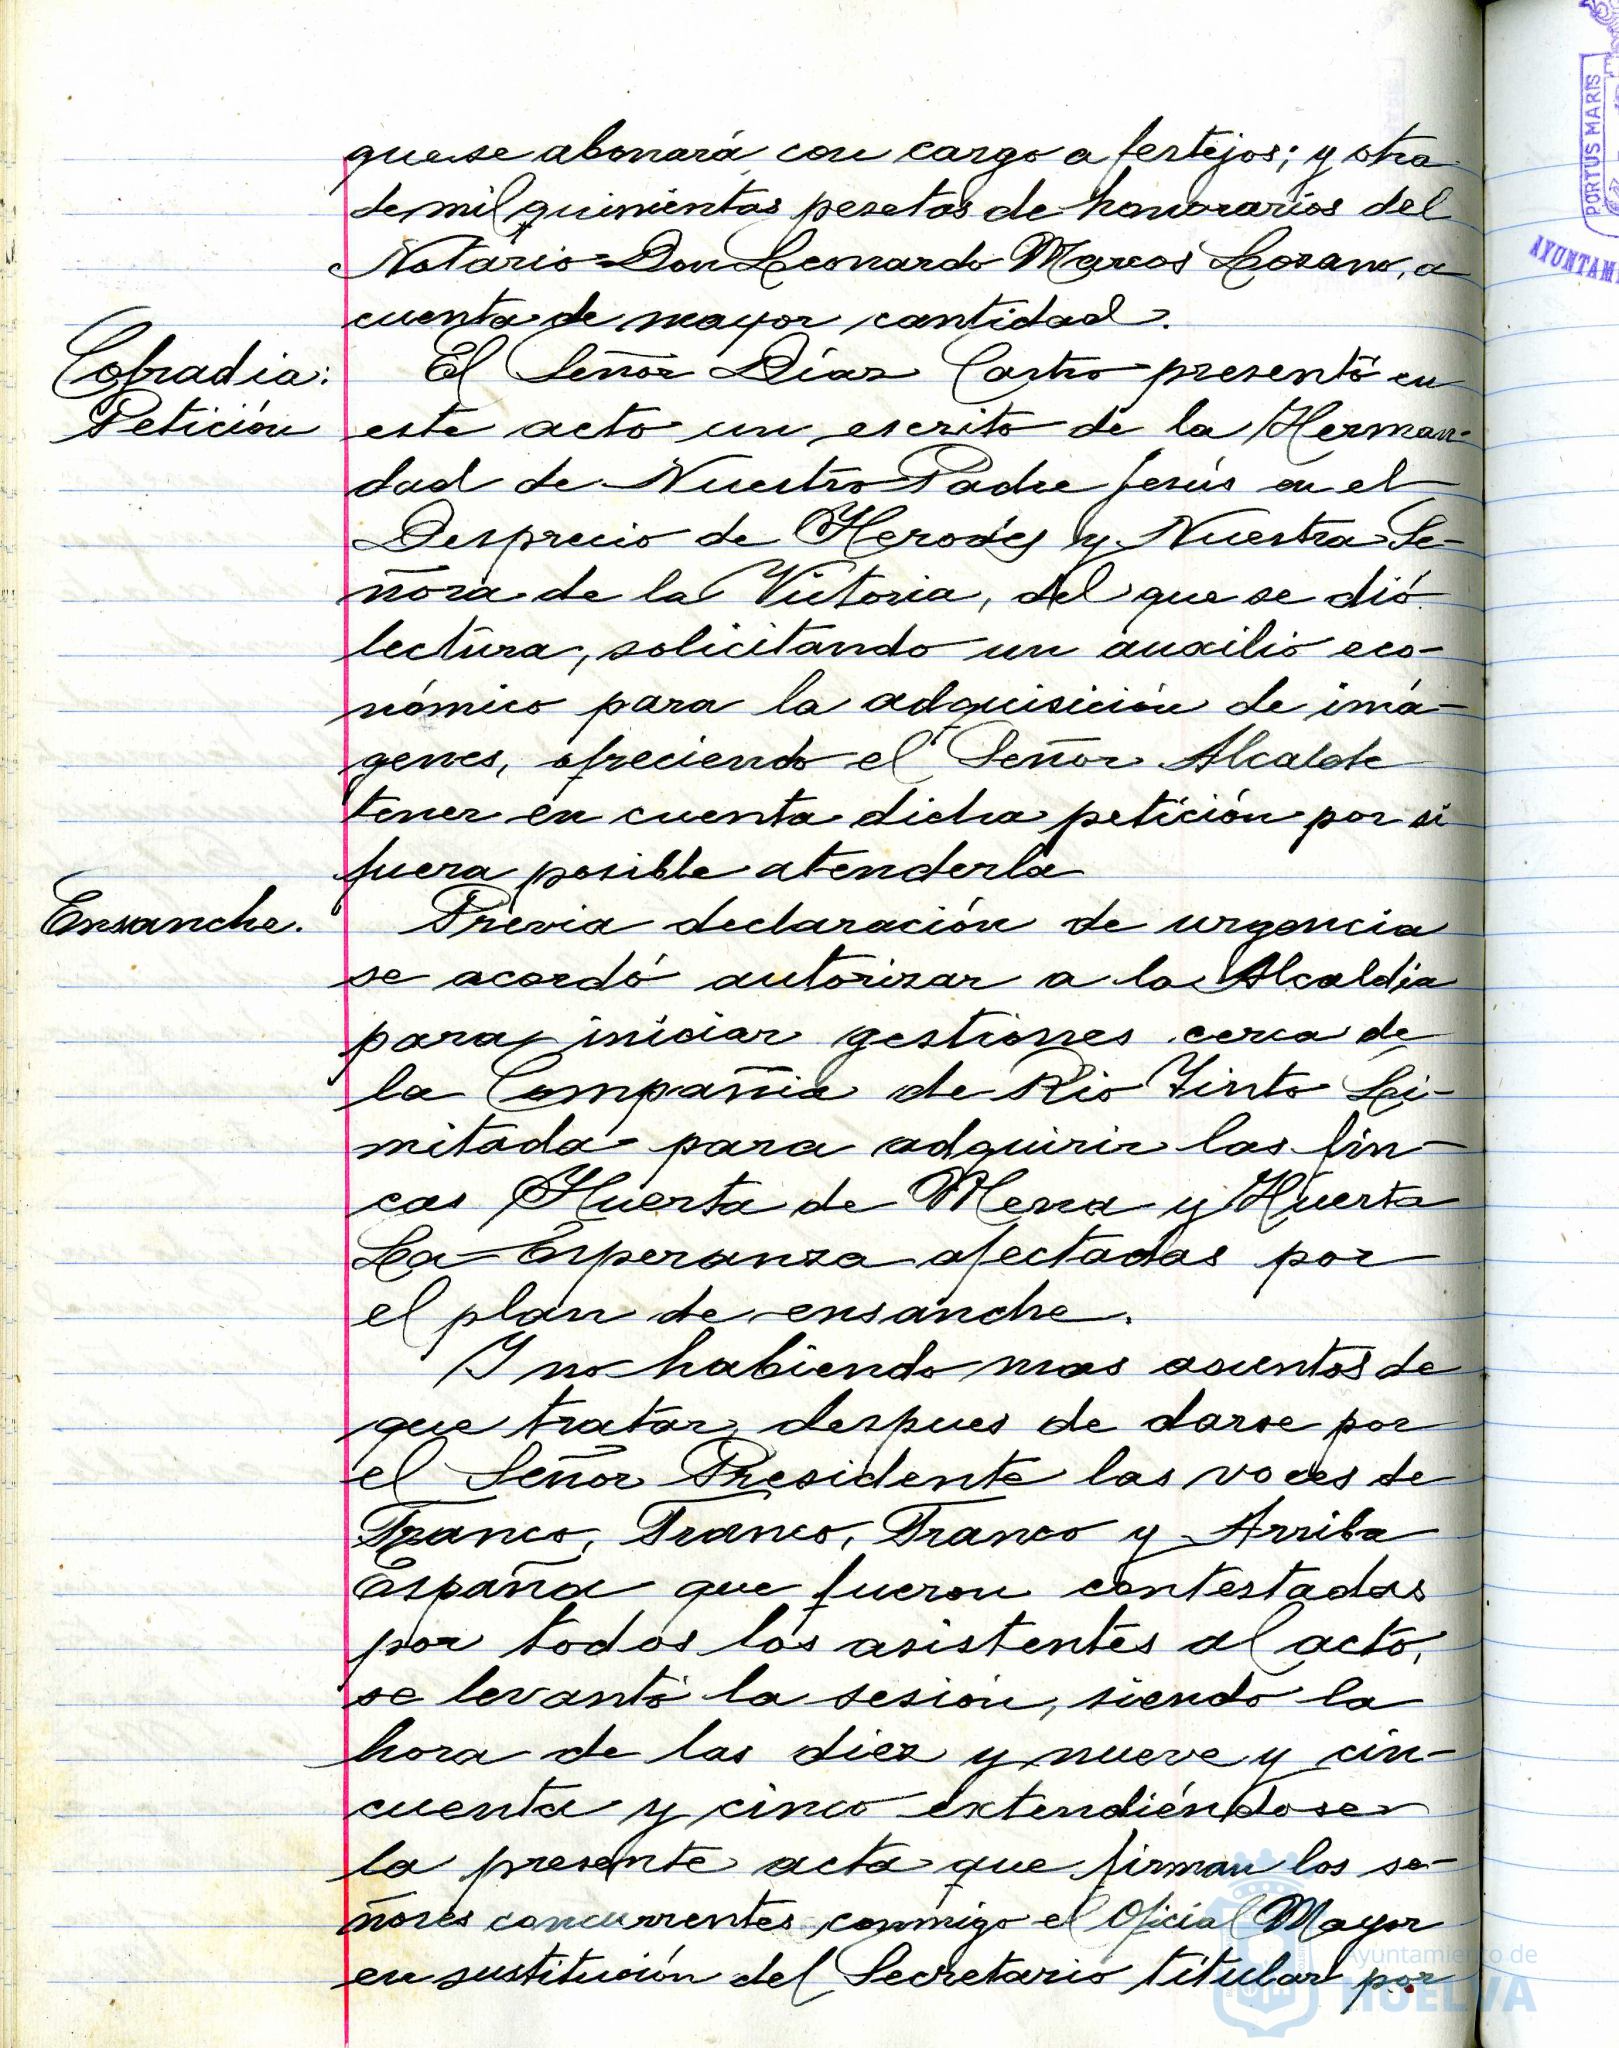 que se abonará con cargo a festejos; y otra
de mil quinientas pesetas de honorarios del
Notario Don Leonardo Marcos Lozano, a
cuenta de mayor cantidad.
Cofradia:
Petición
El Señor Díaz Castro presentó en
este acto un escrito de la Herman-
dad de Nuestro Padre Jesús en el
Desprecio de Herodes y Nuestra Se-
ñora de la Victoria, del que se dió
lectura, solicitando un auxilio eco-
nómico para la adquisición de imá-
genes, ofreciendo el Señor Alcalde
tener en cuenta dicha petición por si
fuera posible atenderla
Ensanche.
Previa declaración de urgencia
se acordó autorizar a la Alcaldia
para iniciar gestiones cerca de
la Compañia de Rio Tinto Li-
mitada para adquirir las fin-
cas Huerta de Mena y Huerta
La Esperanza afectadas por
el plan de ensanche.
Y no habiendo mas asuntos de
que tratar, despues de darse por
el Señor Presidente las voces de
Franco, Franco, Franco y Arriba
España que fueron contestadas
por todos los asistentes al acto,
se levantó la sesión, siendo la
hora de las diez y nueve y cin-
cuenta y cinco extendiéndose
la presente acta que firman los se-
ñores concurrentes conmigo el Oficial Mayor
en sustitución del Secretario titular por
PORTUS MARIS
AYUNTAM
Ayuntamiento de
HUELVA